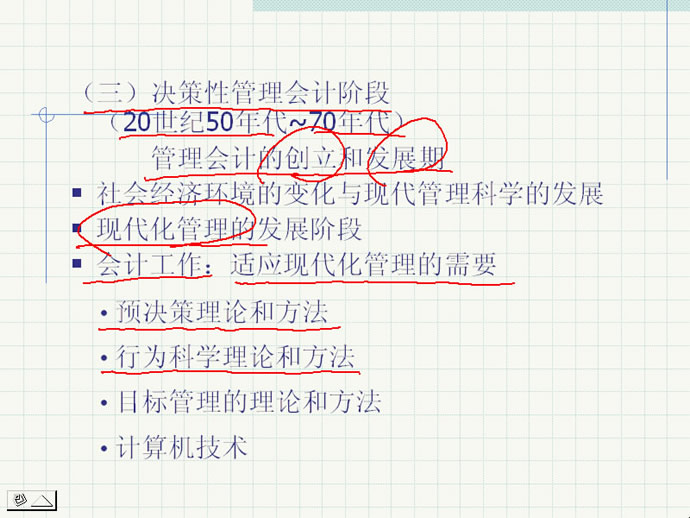 （三）决策性管理会计阶段
（20世纪50年代~70年代）
管理会计的创立和发展期
▪ 社会经济环境的变化与现代管理科学的发展
▪ 现代化管理的发展阶段
▪ 会计工作：适应现代化管理的需要
• 预决策理论和方法
• 行为科学理论和方法
• 目标管理的理论和方法
• 计算机技术